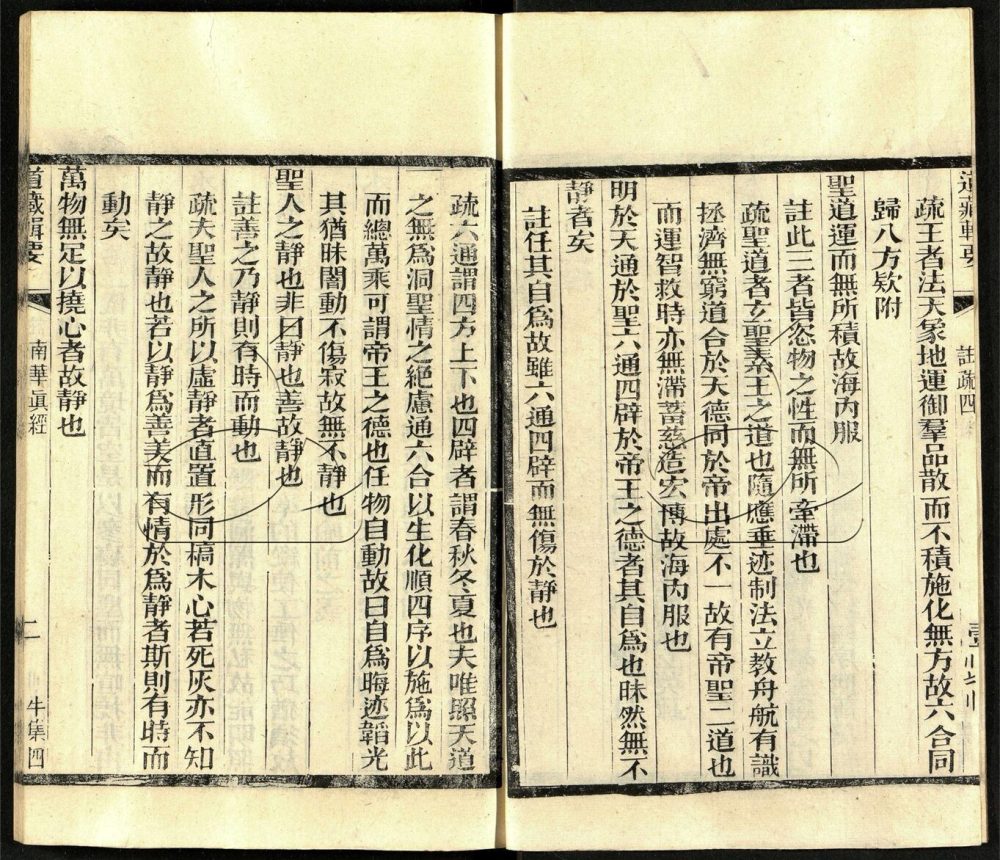 道藏輯要
註疏四
疏王者法天象地運御羣品散而不積施化無方故六合同
歸八方欵附
聖道運而無所積故海內服
註此三者皆恣物之性而無所牽滯也
疏聖道者玄聖素王之道也隨應垂迹制法立教舟航有識
拯濟無窮道合於天德同於帝出處不一故有帝聖二道也
而運智救時亦無滯蓄慈造宏博故海內服也
明於天通於聖六通四辟於帝王之德者其自爲也昧然無不
靜者矣
註任其自爲故雖六通四辟而無傷於靜也
疏六通謂四方上下也四辟者謂春秋冬夏也夫唯照天道
之無爲洞聖情之絕慮通六合以生化順四序以施爲以此
而總萬乘可謂帝王之德也任物自動故曰自爲晦迹韜光
其猶昧闇動不傷寂故無不靜也
聖人之靜也非曰靜也善故靜也
註善之乃靜則有時而動也
疏夫聖人之所以虛靜者直置形同槁木心若死灰亦不知
靜之故靜也若以靜爲善美而有情於爲靜者斯則有時而
動矣
萬物無足以撓心者故靜也
道藏輯要
南華眞經
二
牛集四